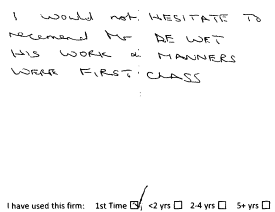 I would not HESITATE TO
recommend Mr DE WET
HIS WORK & MANNERS
WERE FIRST CLASS
I have used this firm: 1st Time ☑ <2 yrs ☐ 2-4 yrs ☐ 5+ yrs ☐